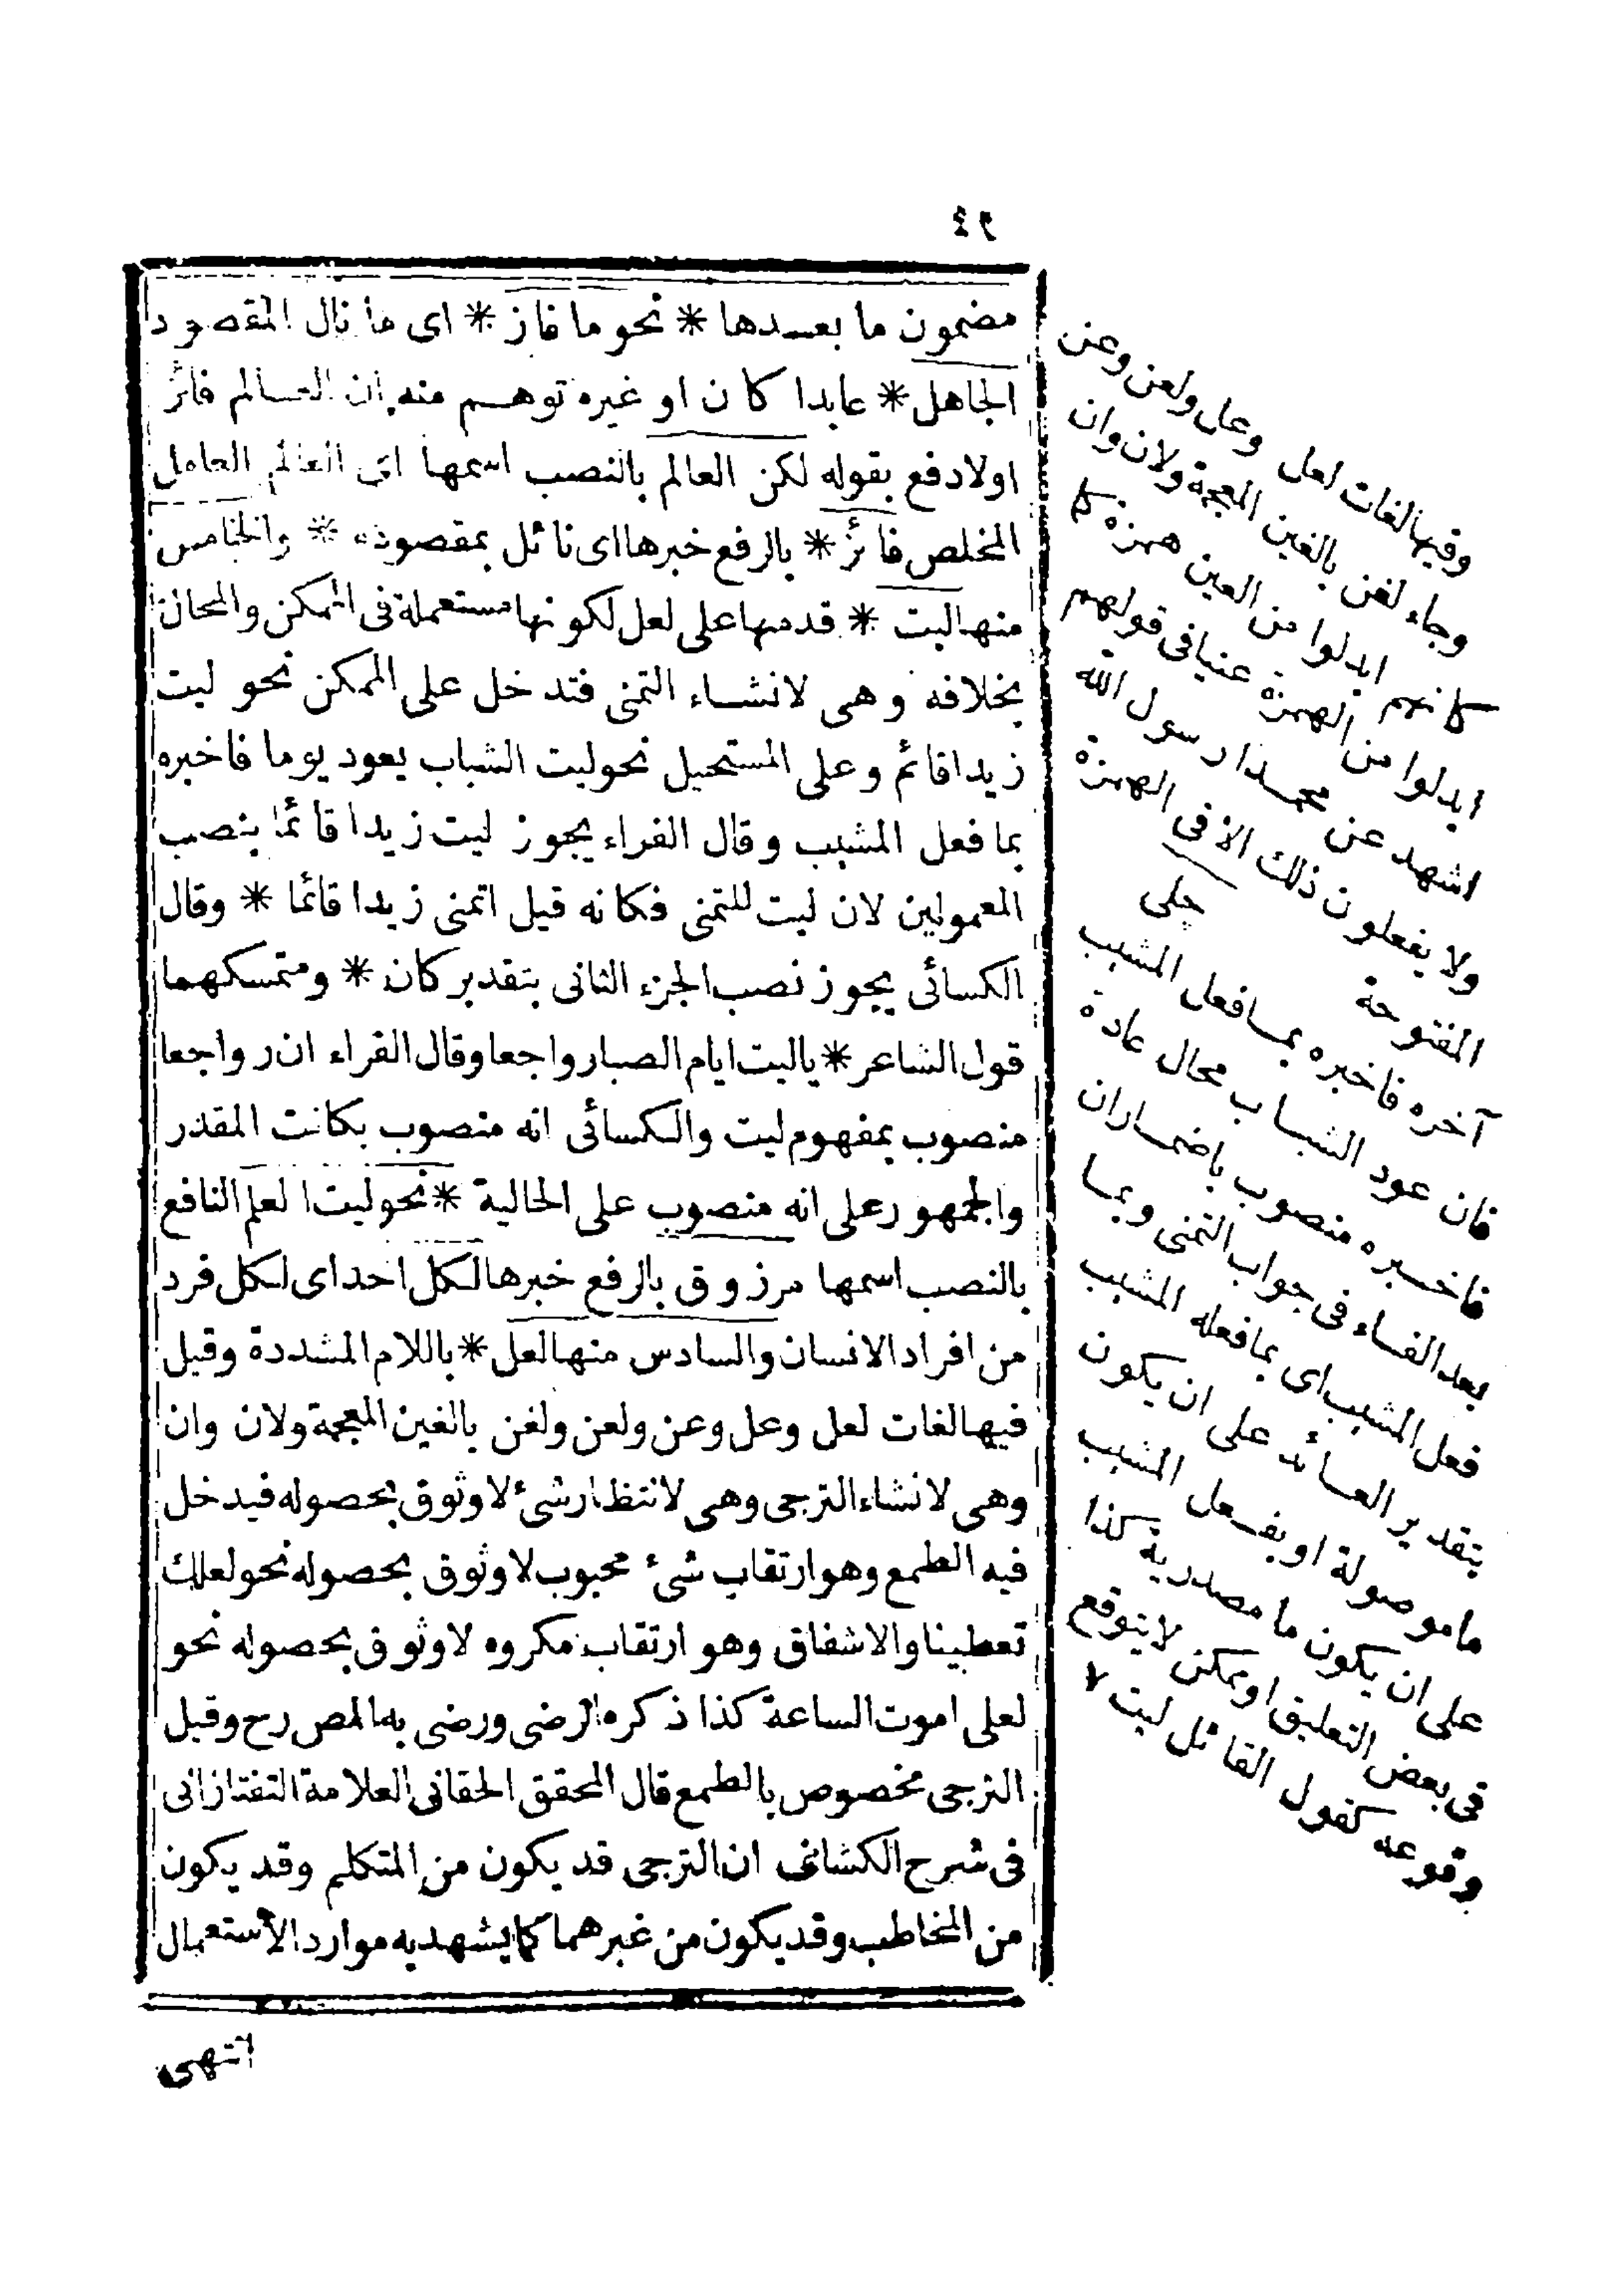 ٤٩
مضمون ما بعدها * نحو ما فاز * اى ما نال المقصود
الجاهل * عابدا كان او غيره توهم منه ان العالم فائز
اولا دفع بقوله لكن العالم بالنصب اسمها اى العالم العامل
المخلص فائز * بالرفع خبرها اى نائل بمقصوده * والخامس
منها ليت * قدمها على لعل لكونها مستعملة فى الممكن والمحال
بخلافه وهى لانشاء التمنى فتدخل على الممكن نحو ليت
زيدا قائم وعلى المستحيل نحو ليت الشباب يعود يوما فاخبره
بما فعل المشيب وقال الفراء يجوز ليت زيدا قائما بنصب
المعمولين لان ليت للتمنى فكانه قيل اتمنى زيدا قائما * وقال
الكسائى يجوز نصب الجزء الثانى بتقدير كان * ومتمسكهما
قول الشاعر * ياليت ايام الصبا رواجعا وقال الفراء ان رواجعا
منصوب بمفهوم ليت والكسائى انه منصوب بكانت المقدر
والجمهور على انه منصوب على الحالية * نحو ليت العلم النافع
بالنصب اسمها مرزوق بالرفع خبرها لكل احد اى لكل فرد
من افراد الانسان والسادس منها لعل * باللام المشددة وقيل
فيها لغات لعل وعل وعن ولعن ولغن بالغين المعجمة ولان وان
وهى لانشاء الترجى وهى لانتظار شئ لا وثوق بحصوله فيدخل
فيه الطمع وهو ارتقاب شئ محبوب لا وثوق بحصوله نحو لعلك
تعطينا والاشفاق وهو ارتقاب مكروه لا وثوق بحصوله نحو
لعلى اموت الساعة كذا ذكره الرضى ورضى به المص رح وقيل
الترجى مخصوص بالطمع قال المحقق الحقانى العلامة التفتازانى
فى شرح الكشاف ان الترجى قد يكون من المتكلم وقد يكون
من المخاطب وقد يكون من غيرهما كما يشهد به موارد الاستعمال
انتهى
وفيها لغات لعل وعل ولعن وعن
وجاء لغن بالغين المعجمة ولان وان
ابدلوا من العين همزة كما
كانهم
ابدلوا من الهمزة عينا فى قولهم
اشهد عن محمدا رسول الله
ولا يفعلون ذلك الا فى الهمزة
المفتوحة
چلى
آخره فاخبره بما فعل المشيب
فان عود الشباب محال عادة
فاخبره منصوب باضمار ان
بعد الفاء فى جواب التمنى وبما
فعل المشيب اى بما فعله المشيب
بتقدير العائد على ان يكون
ما موصولة او بفعل المشيب
على ان يكون ما مصدرية كذا
فى بعض التعليق او ممكن لا يتوقع
وقوعه كقول القائل ليت